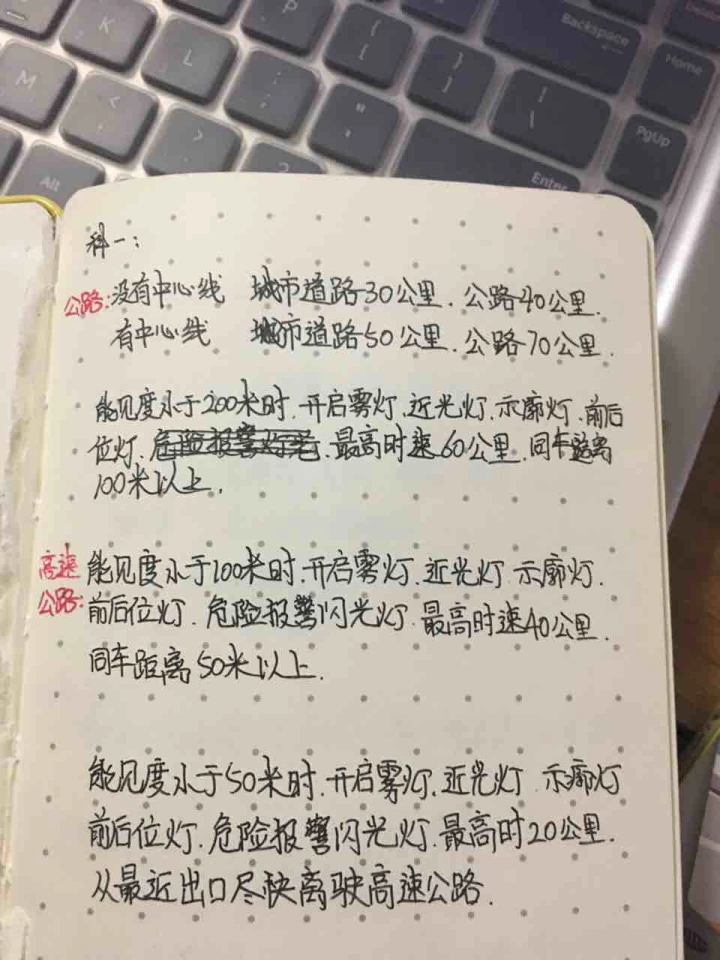 P
{
[
}
]
|
\
Backspace
Delete
Home
PgUp
K
L
:
;
"
'
Enter
M
<
,
>
.
?
Alt
科一:
公路:没有中心线 城市道路30公里.公路40公里.
有中心线 城市道路50公里.公路70公里.
能见度小于200米时.开启雾灯.近光灯.示廓灯.前后
位灯.危险报警灯光.最高时速60公里.同车距离
100米以上.
高速 能见度小于100米时.开启雾灯.近光灯.示廓灯.
公路:前后位灯.危险报警闪光灯.最高时速40公里.
同车距离50米以上.
能见度小于50米时.开启雾灯.近光灯 示廓灯
前后位灯.危险报警闪光灯.最高时20公里.
从最近出口尽快离驶高速公路.